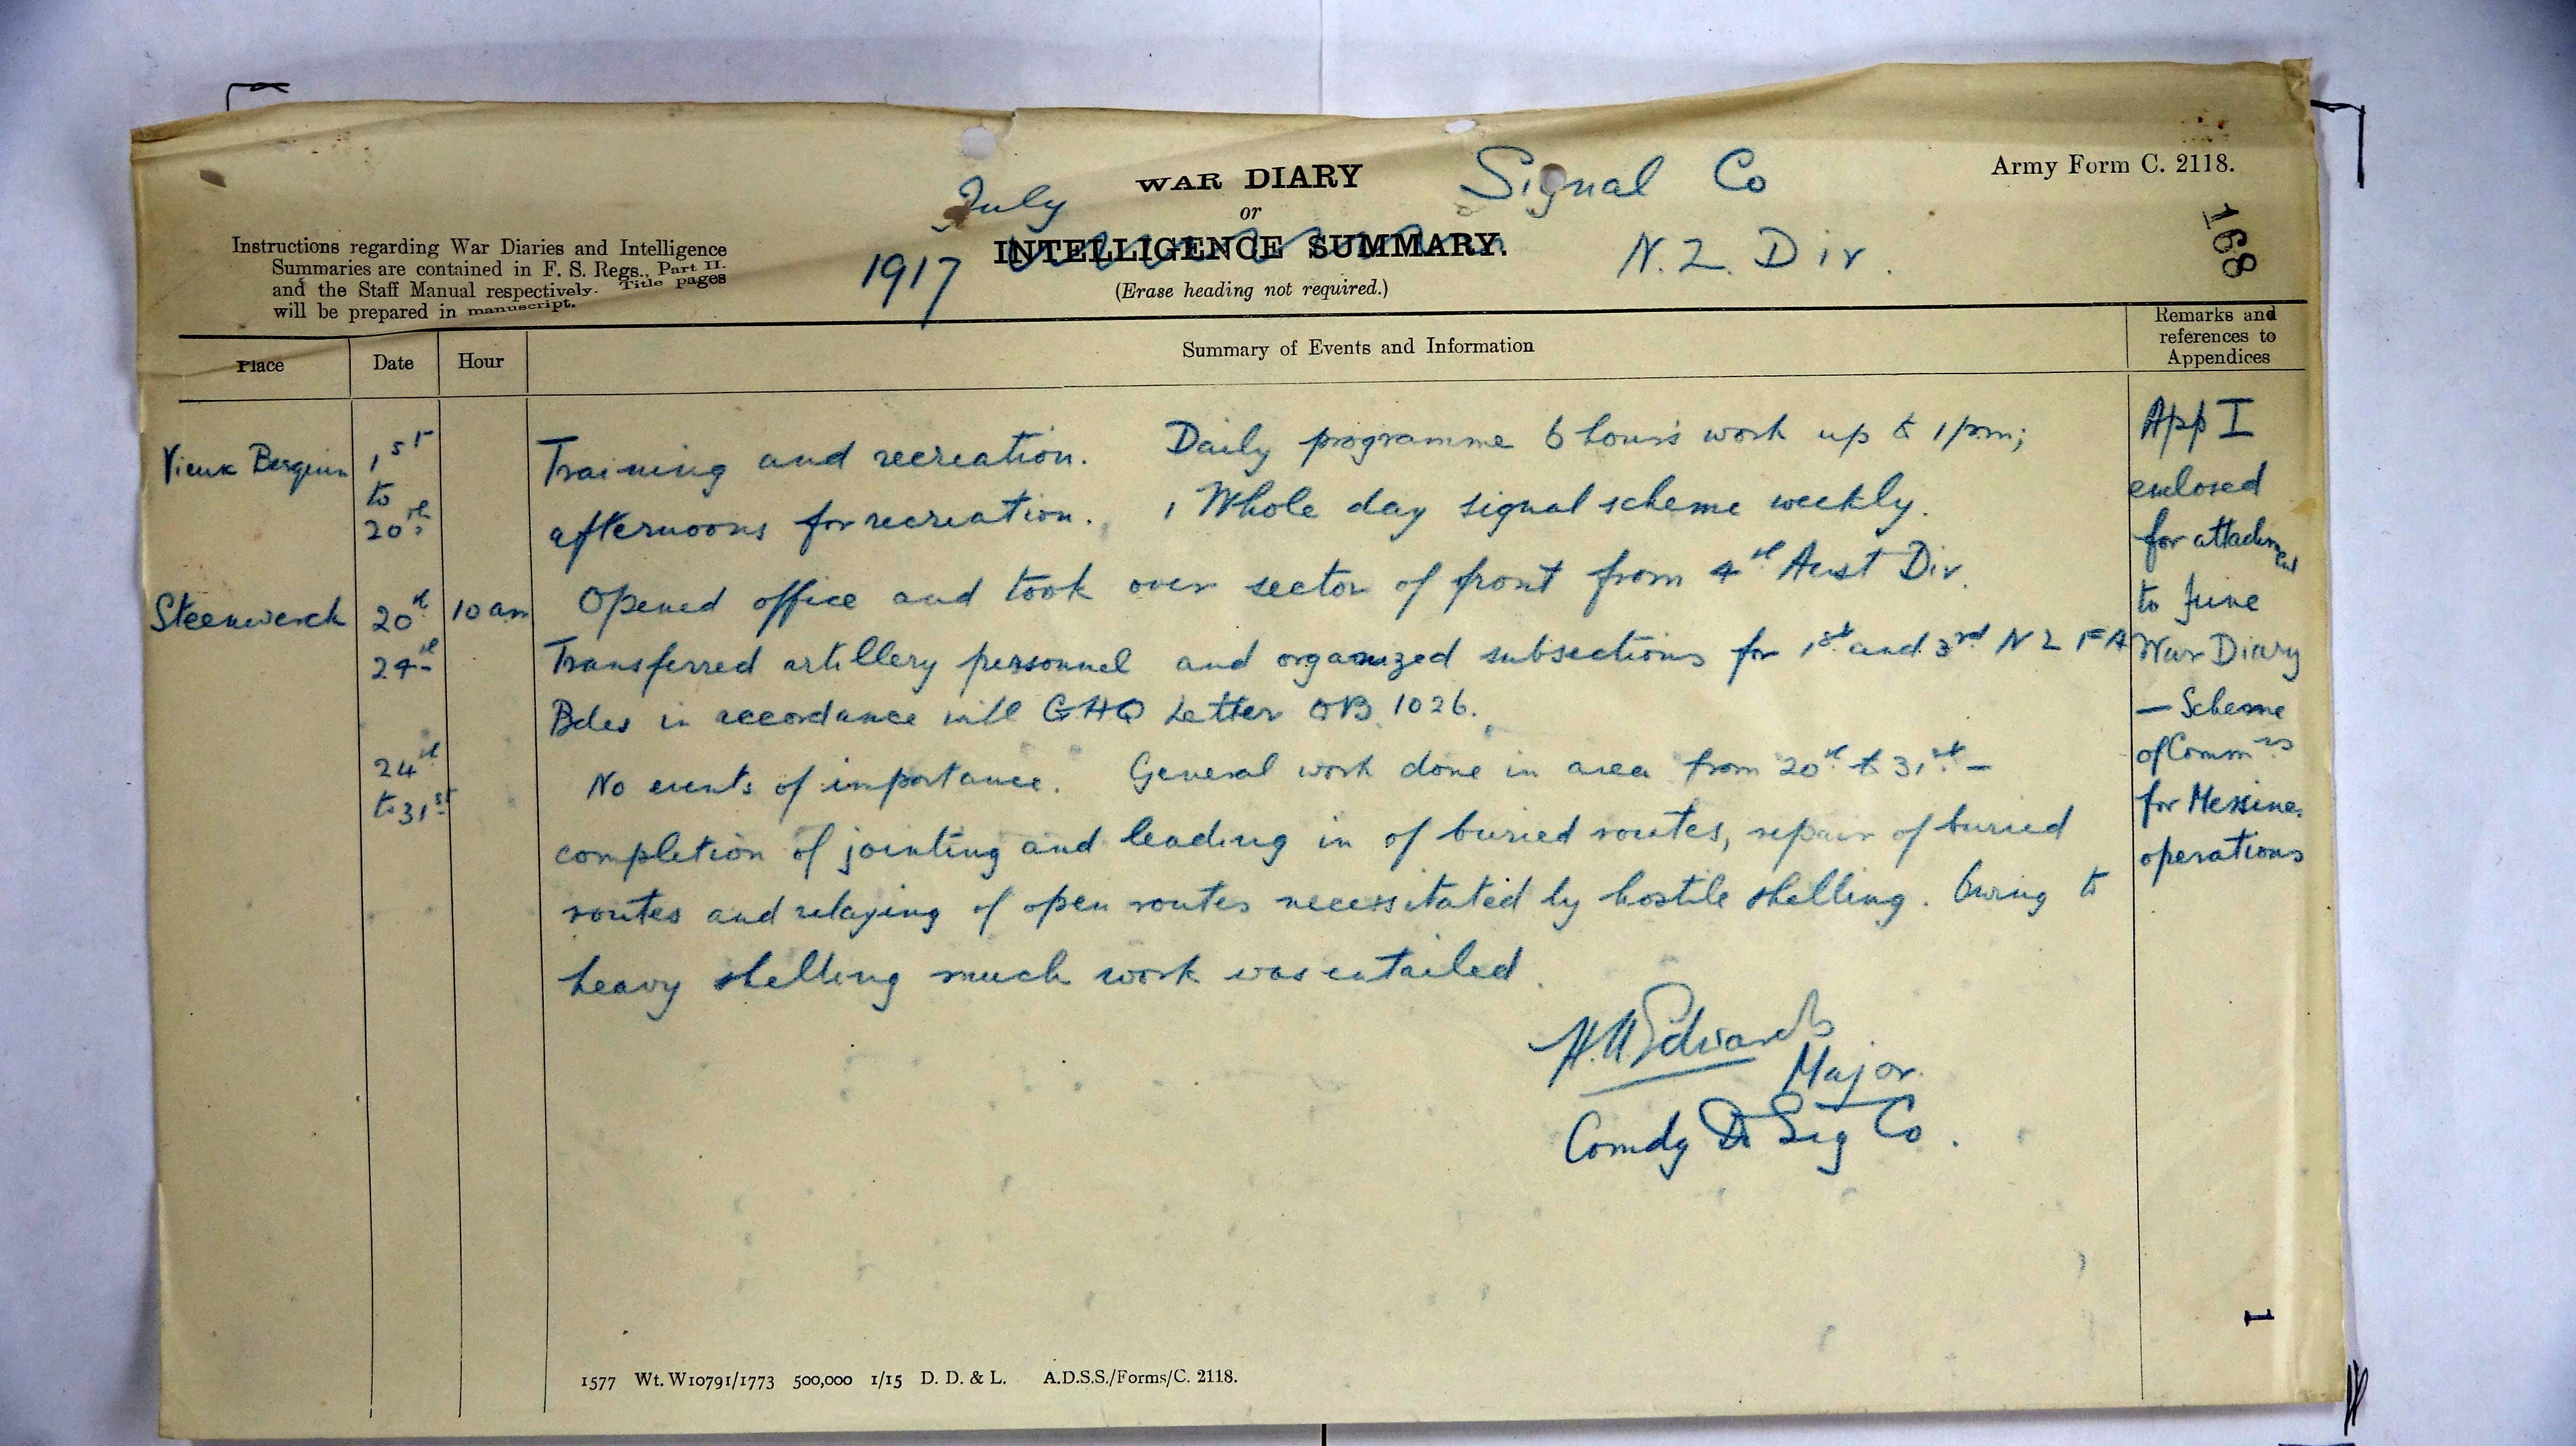 Army Form C. 2118.
168
WAR DIARY
or
INTELLIGENCE SUMMARY.
(Erase heading not required.)
July
1917
Signal Co
N.Z. Div.
Instructions regarding War Diaries and Intelligence
Summaries are contained in F. S. Regs., Part II.
and the Staff Manual respectively. Title pages
will be prepared in manuscript.
Place Date Hour Summary of Events and Information Remarks and references to Appendices
Vieux Berquin 1st to 20th Training and recreation. Daily programme 6 hours work up to 1 pm;
afternoons for recreation. 1 Whole day signal scheme weekly.
Steenwerck 20th 10 am Opened office and took over sector of front from 4th Aust Div.
24th Transferred artillery personnel and organized subsections for 1st and 3rd N Z F A
Bdes in accordance with GHQ Letter OB 1026.
24th to 31st No events of importance. General work done in area from 20th to 31st —
completion of jointing and leading in of buried routes, repair of buried
routes and relaying of open routes necessitated by hostile shelling. Owing to
heavy shelling much work was entailed.
Edwards
Major.
Comdg Sig Co.
App I
enclosed
for attachment
to June
War Diary
— Scheme
of Commns
for Messines
operations
1
1577 Wt. W10791/1773 500,000 1/15 D. D. & L. A.D.S.S./Forms/C. 2118.